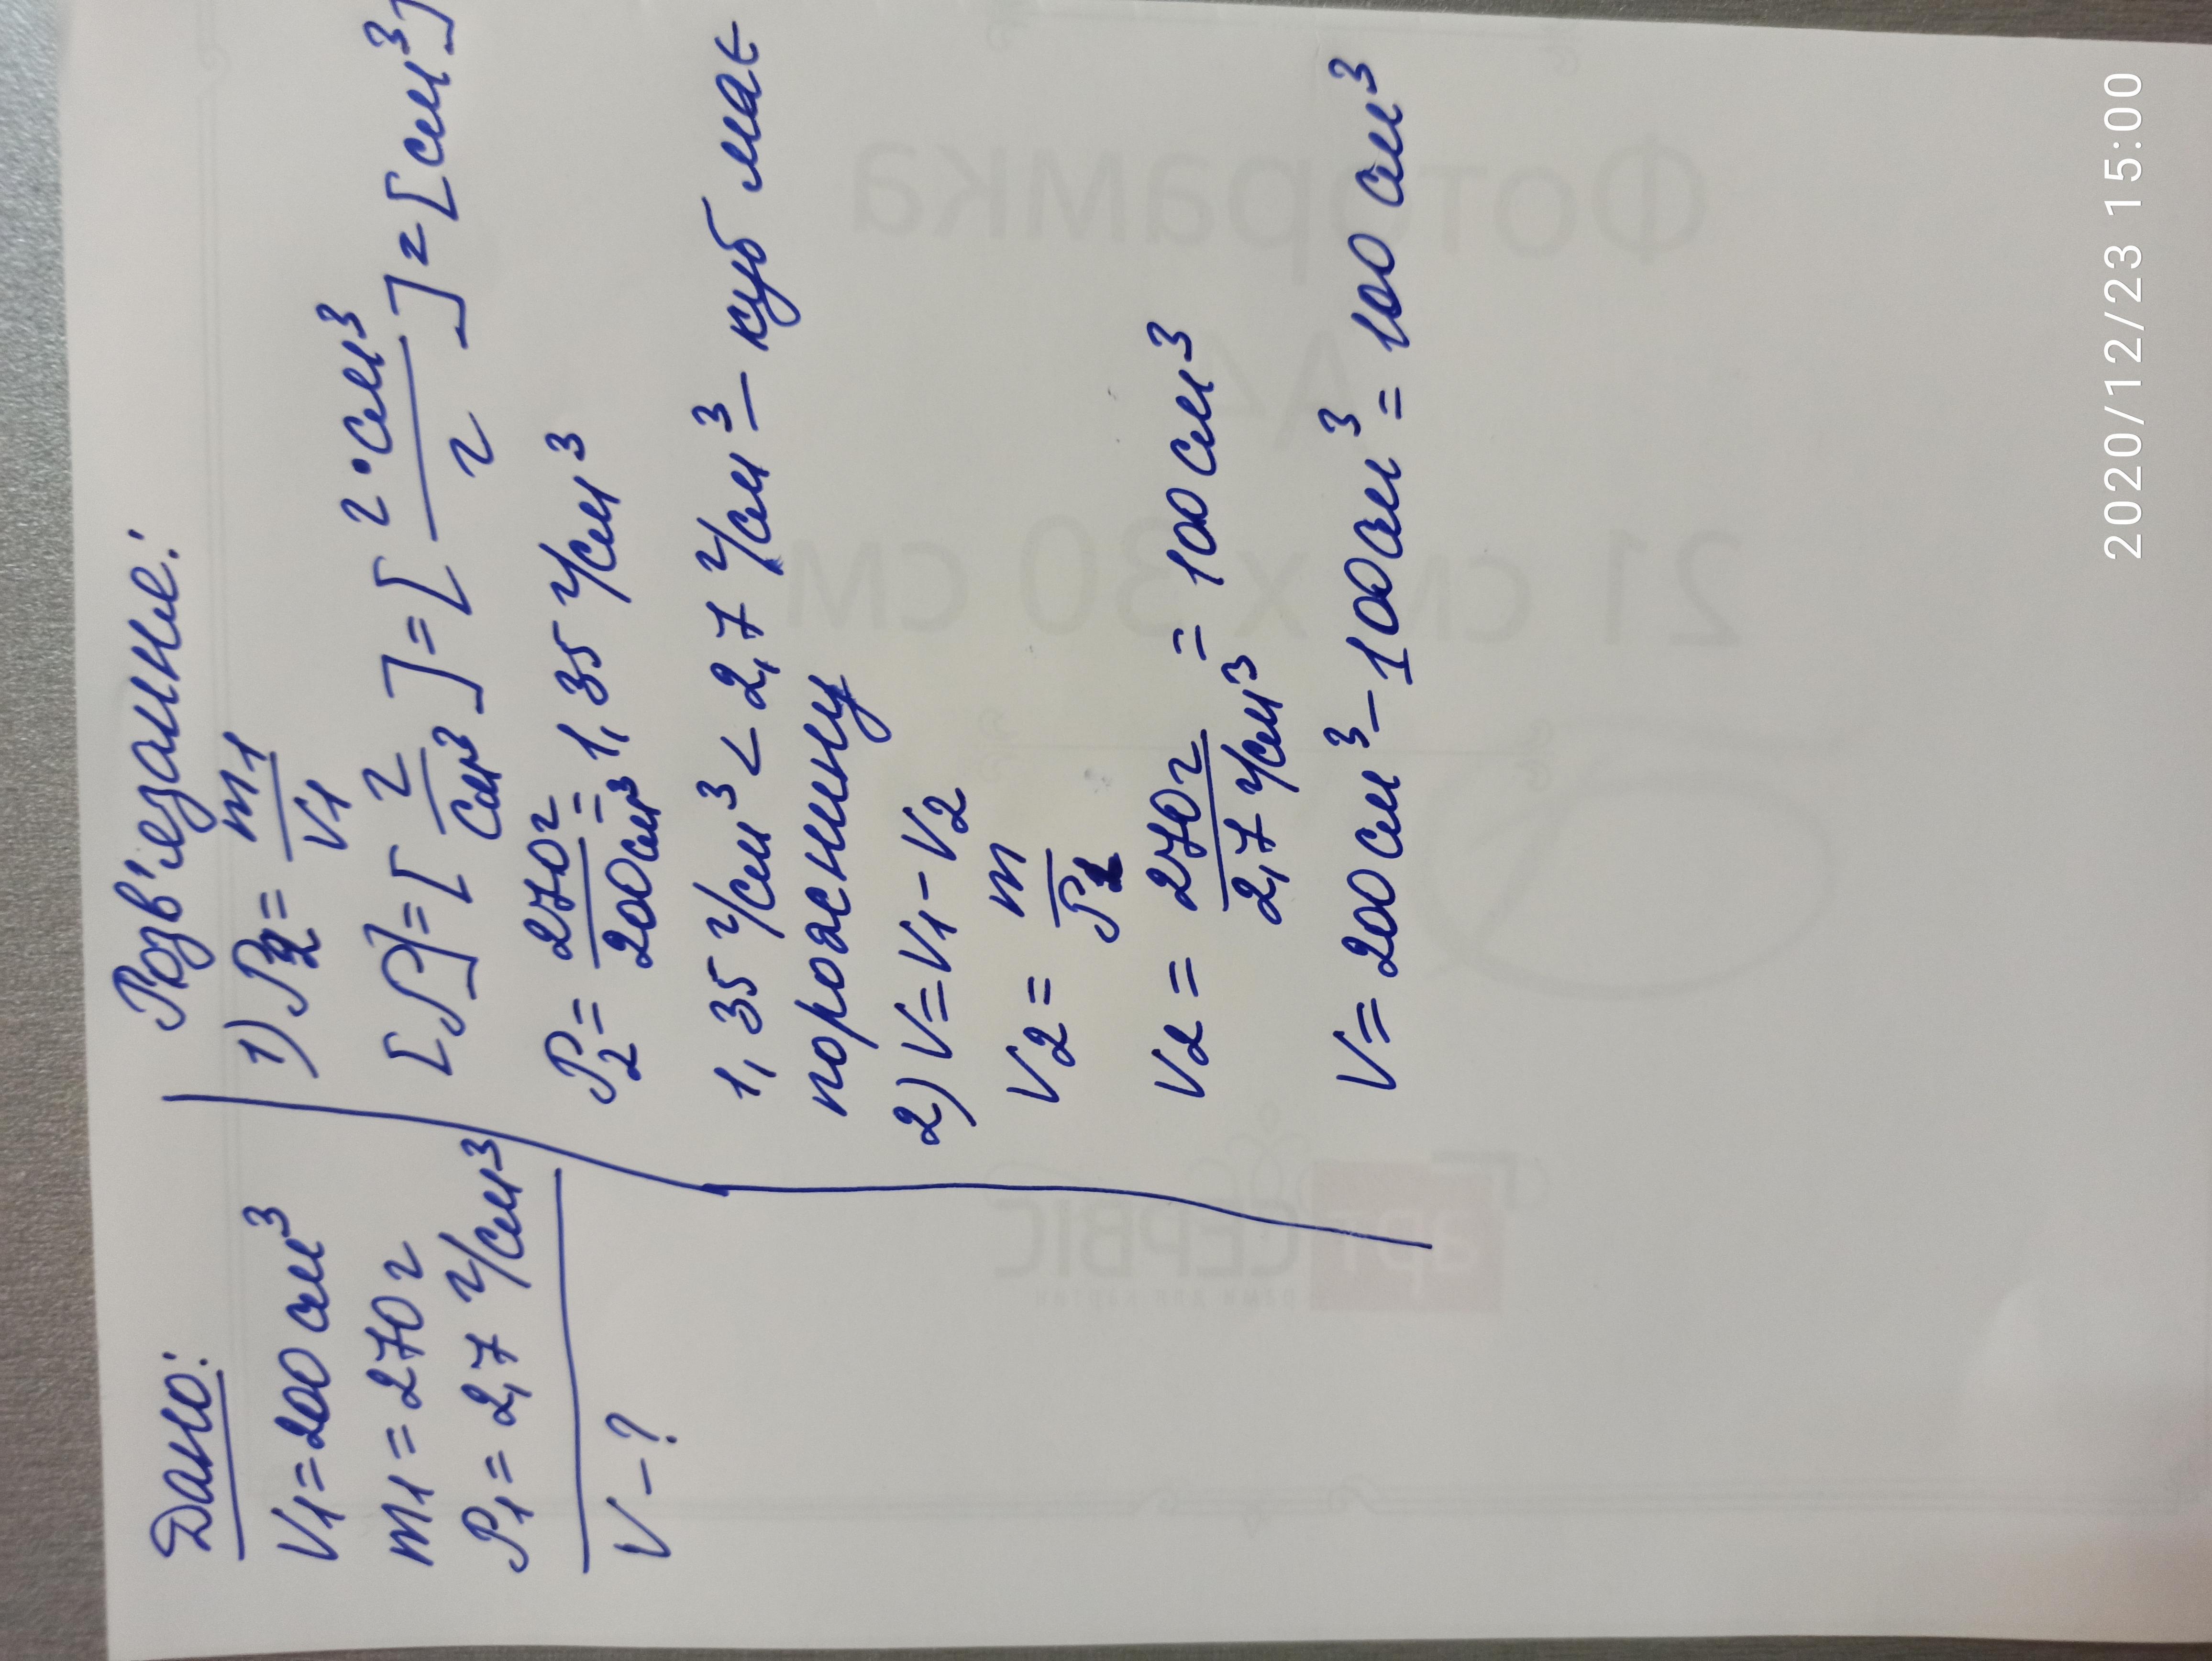 Дано:
V1 = 200 см³
m1 = 270 г
ρ1 = 2,7 г/см³
V - ?
Розв'езание:
1) ρ2 = m1/V1
[ρ] = [г/см³] = [г•см³/г] = [см³]
ρ2 = 270г/200см³ = 1,35 г/см³
1,35 г/см³ < 2,7 г/см³ - куб має
порожнину
2) V = V1 - V2
V2 = m/ρ1
V2 = 270г/2,7 г/см³ = 100 см³
V = 200 см³ - 100 см³ = 100 см³
Фоторамка
A4
21 см x 30 см
арт СЕРВІС
2020/12/23 15:00